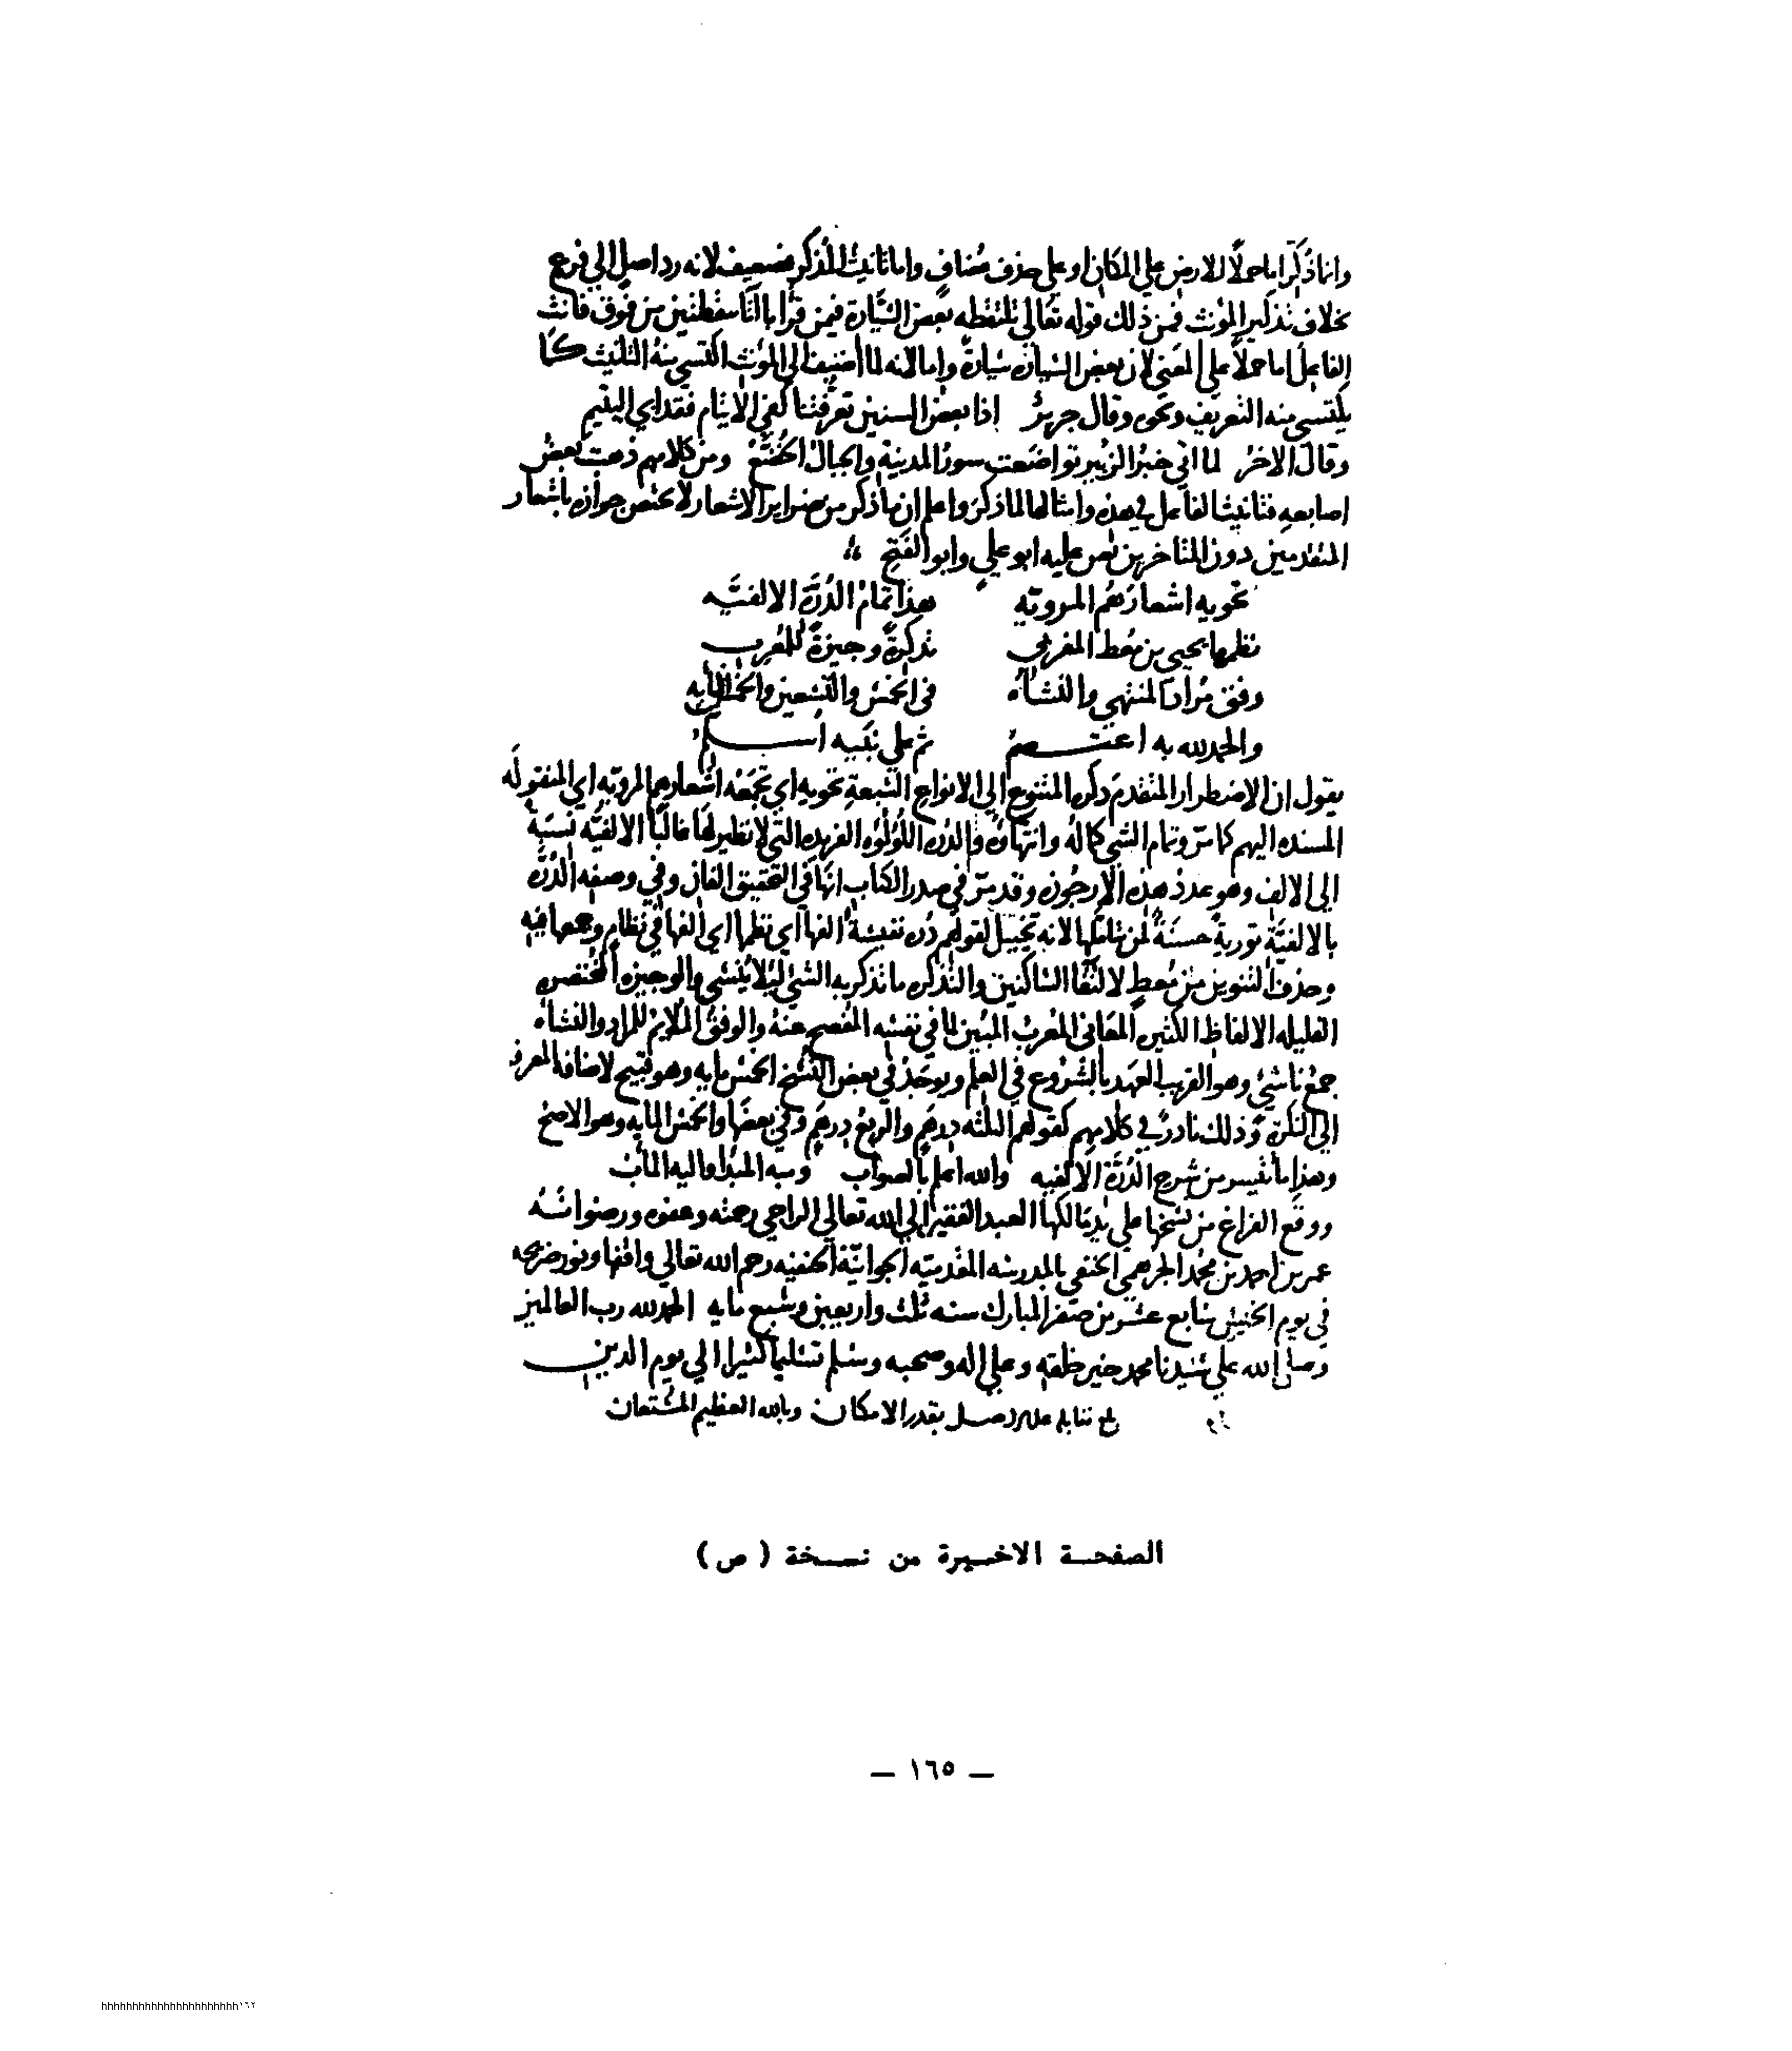 وانما ذكر اما حملًا للارض علي المكان او علي حذف مضاف واما تانيث المذكر فضعيف لانه رد اصل الي فرع
بخلاف تذكير المونث فمن ذلك قوله تعالي تلتقطه بعض السيارة فيمن قرا بالتا بنقطتين من فوق فانث
الفاعل اما حملاً علي المعني لان بعض السيارة سيارة واما لانه لما اضيف الي المونث اكتسي منه التانيث كما
يكتسي منه التعريف ونحوه وقال جرير اذا بعض السنين تعرقتنا كفي الايتام فقد ابي اليتيم
وقال الاخر لما اتي خبر الزبير تواضعت سور المدينة والجبال الخشع ومن كلامهم ذهبت بعض
اصابعه فتانيث الفاعل في هذه وامثالها لما ذكر واعلم ان ما ذكر من ضراير الاشعار لا يختص جوازه باشعار
المتقدمين دون المتاخرين نص عليه ابو علي وابو الفتح
تحويه اشعارهم المروية هذا تمام الدرة الالفيه
نظمها يحيي بن معط المغربي تذكرة وجيزة للمعرب
وفق مراد المنتهي والنشاه في الخمس والتسعين والخمسمايه
والحمد لله به اعتصم ثم علي نبيه اسلم
يقول ان الاضطرار المتقدم ذكره المتنوع الي الانواع السبعة تحويه اي تجمعه اشعارهم المرويه اي المنقوله
المسنده اليهم كما مر وتمام الشي كماله وانتهاوه والدره اللولوه الفريده التي لا نظير لها غالبًا الالفيه نسبة
الي الالف وهو عدد هذه الارجوزه وقد مر في صدر الكتاب انها في التحقيق الفان وفي وصفه الدره
بالالفية تورية حسنة لمن تاملها لانه تخييل لقولهم در نفيسة الفها اي نظمها اي الفها في نظام وجمعها فيه
وحذف التنوين من معط لالتقا الساكنين والتذكره ما تذكر به الشي ليلا ينسي والوجيزه المختصره
القليله الالفاظ الكثيره المعاني المعرب المبين لما في نفسه المفصح عنه والوفق الملايم للمراد والنشاه
جمع ناشي وهو القريب العهد بالشروع في العلم ويوجد في بعض النسخ الخمس مايه وهو قبيح لاضافة المعرفه
الي النكرة وذلك نادر في كلامهم كقولهم الثلثه درهم والربع درهم وفي بعضها والخمس المايه وهو الاصح
وهذا ما تيسر من شرح الدرة الالفيه والله اعلم بالصواب ومنه المبدا واليه المآب
ووقع الفراغ من نسخها علي يد مالكها العبد الفقير الي الله تعالي الراجي رحمته وعفوه ورضوانه
عمر بن احمد بن محمد الجرهمي الحنفي بالمدرسه المقدميه الجوانية الحنفيه رحم الله تعالي واقفها ونور ضريحه
في يوم الخميس سابع عشر من صفر المبارك سنه ثلث واربعين وسبع مايه الحمد لله رب العالمين
وصلي الله علي سيدنا محمد خير خلقه وعلي اله وصحبه وسلم تسليما كثيرا الي يوم الدين
بلغ مقابله علي اصل بقدر الامكان وبالله العظيم المستعان
الصفحة الاخيرة من نسخة ( ص )
— ١٦٥ —
hhhhhhhhhhhhhhhhhhhhhh١٦٢